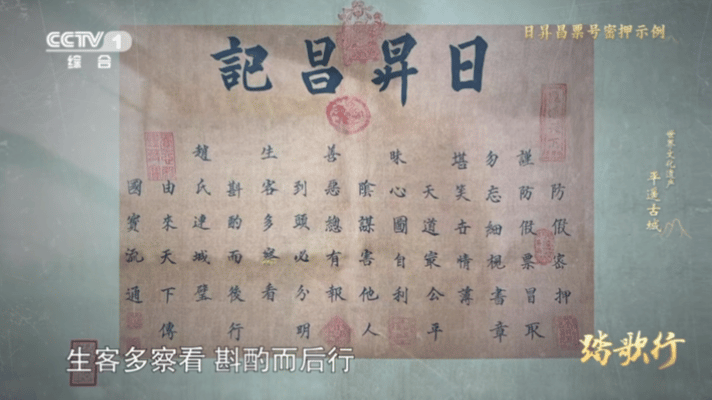 CCTV 1
综合
日昇昌票号密押示例
世界文化遗产
平遥古城
日昇昌記
防假密押
謹防假票冒取
勿忘細視書章
堪笑世情薄
天道最公平
昧心圖自利
陰謀害他人
善惡總有報
到頭必分明
生客多察看
斟酌而後行
趙氏連城璧
由來天下傳
國寳流通
生客多察看 斟酌而后行
踏歌行